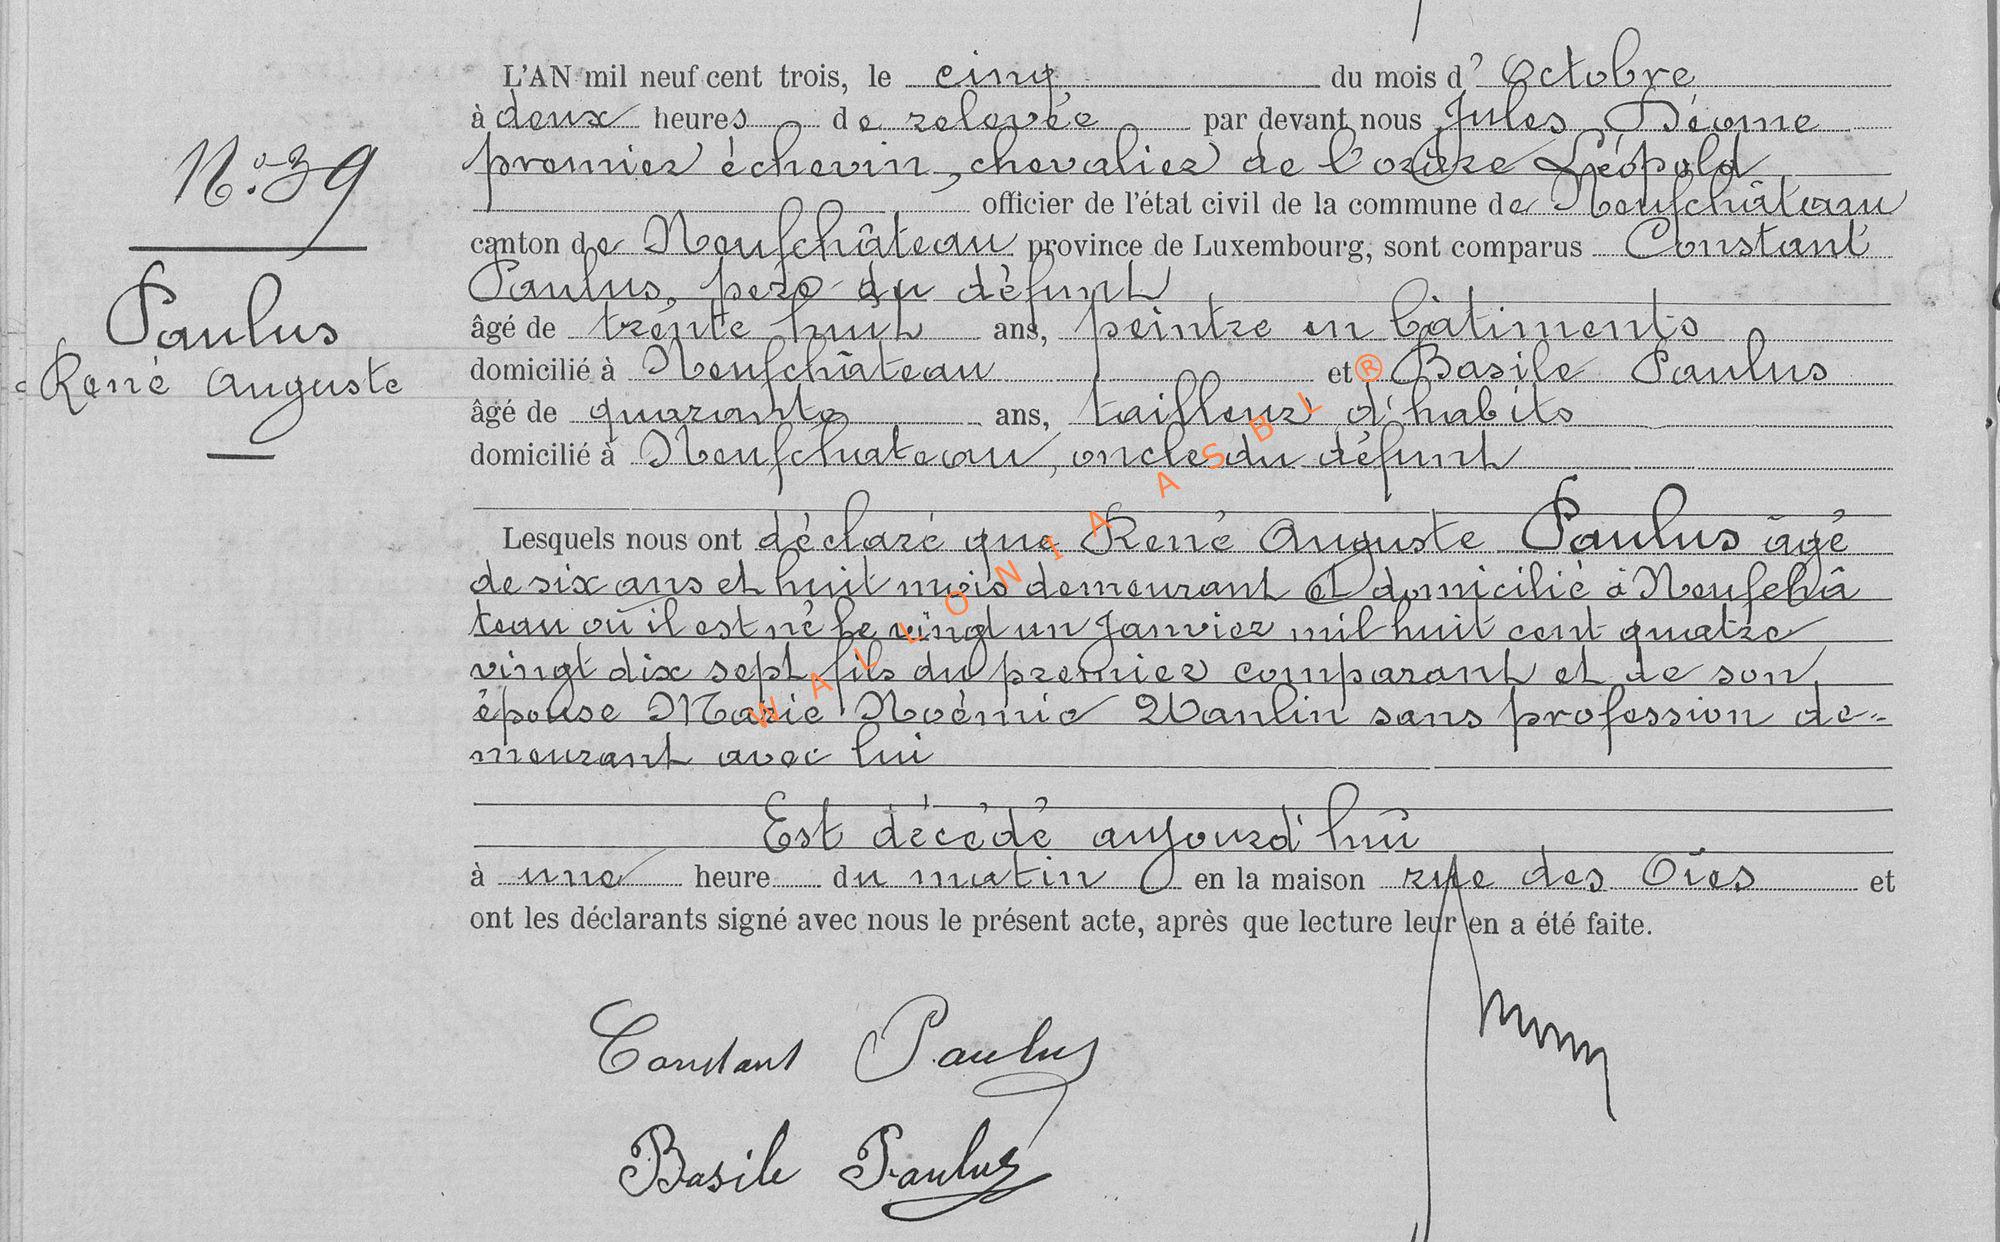 L'AN mil neuf cent trois, le cinq du mois d'Octobre
à deux heures de relevée par devant nous Jules
premier échevin, chevalier de l'ordre Léopold
officier de l'état civil de la commune de Neufchâteau
canton de Neufchâteau province de Luxembourg, sont comparus Constant
Paulus, père du défunt
âgé de trente huit ans, peintre en bâtiments
domicilié à Neufchâteau et Basile Paulus
âgé de quarante ans, tailleur d'habits
domicilié à Neufchateau, oncle du défunt
N.° 39
Paulus
René Auguste
Lesquels nous ont déclaré que René Auguste Paulus âgé
de six ans et huit mois demeurant et domicilié à Neufchâ
teau où il est né le vingt un Janvier mil huit cent quatre
vingt dix sept fils du premier comparant et de son
épouse Marie Noémie Wanlin sans profession de-
meurant avec lui
Est décédé aujourd'hui
à une heure du matin en la maison rue des Oies et
ont les déclarants signé avec nous le présent acte, après que lecture leur en a été faite.
Constant Paulus
Basile Paulus
WALLONIA ASBL ®